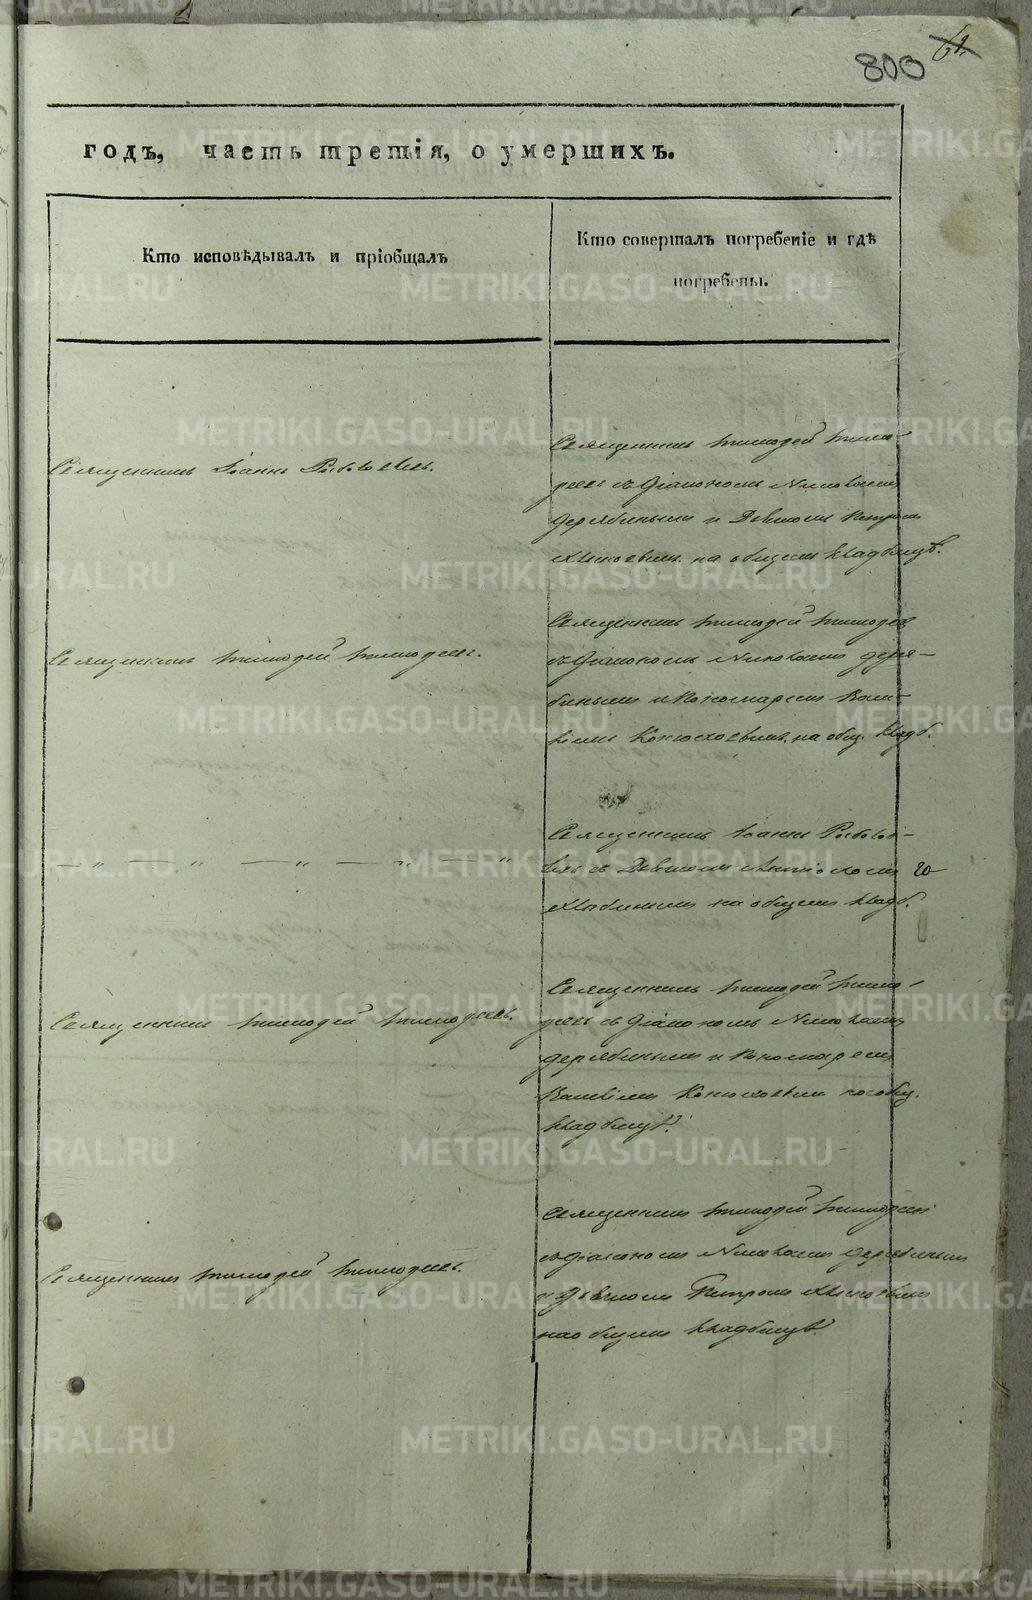 803 61.
годъ, часть третія, о умершихъ.
Кто исповѣдывалъ и пріобщалъ
Кто совершалъ погребеніе и гдѣ
погребены.
Священникъ Іоаннъ
Священникъ Тимофей Тимо-
феевъ съ Діакономъ Николаемъ
Дерябинымъ и Дьячкомъ Петромъ
на общемъ кладбищѣ.
Священникъ Тимофей Тимофеевъ.
Священникъ Тимофей Тимофеевъ
съ Діакономъ Николаемъ Деря-
бинымъ и Пономаремъ
Конюховымъ на общ. кладб.
— „ — „ — „ — „ — „
Священникъ Іоаннъ
съ Дьячкомъ
на общемъ кладб.
Священникъ Тимофей Тимофеевъ.
Священникъ Тимофей Тимо-
феевъ съ Діакономъ Николаемъ
Дерябинымъ и Пономаремъ
Конюховымъ
кладбищѣ.
Священникъ Тимофей Тимофеевъ.
Священникъ Тимофей Тимофеевъ
съ Діакономъ Николаемъ Дерябинымъ
и Дьячкомъ Петромъ
на общемъ кладбищѣ.
METRIKI.GASO-URAL.RU